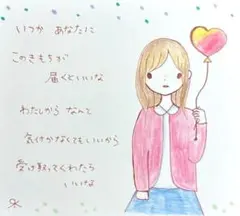 いつか あなたに
このきもちが
届くといいな
わたしから なんて
気付かなくてもいいから
受け取ってくれたら
いいな